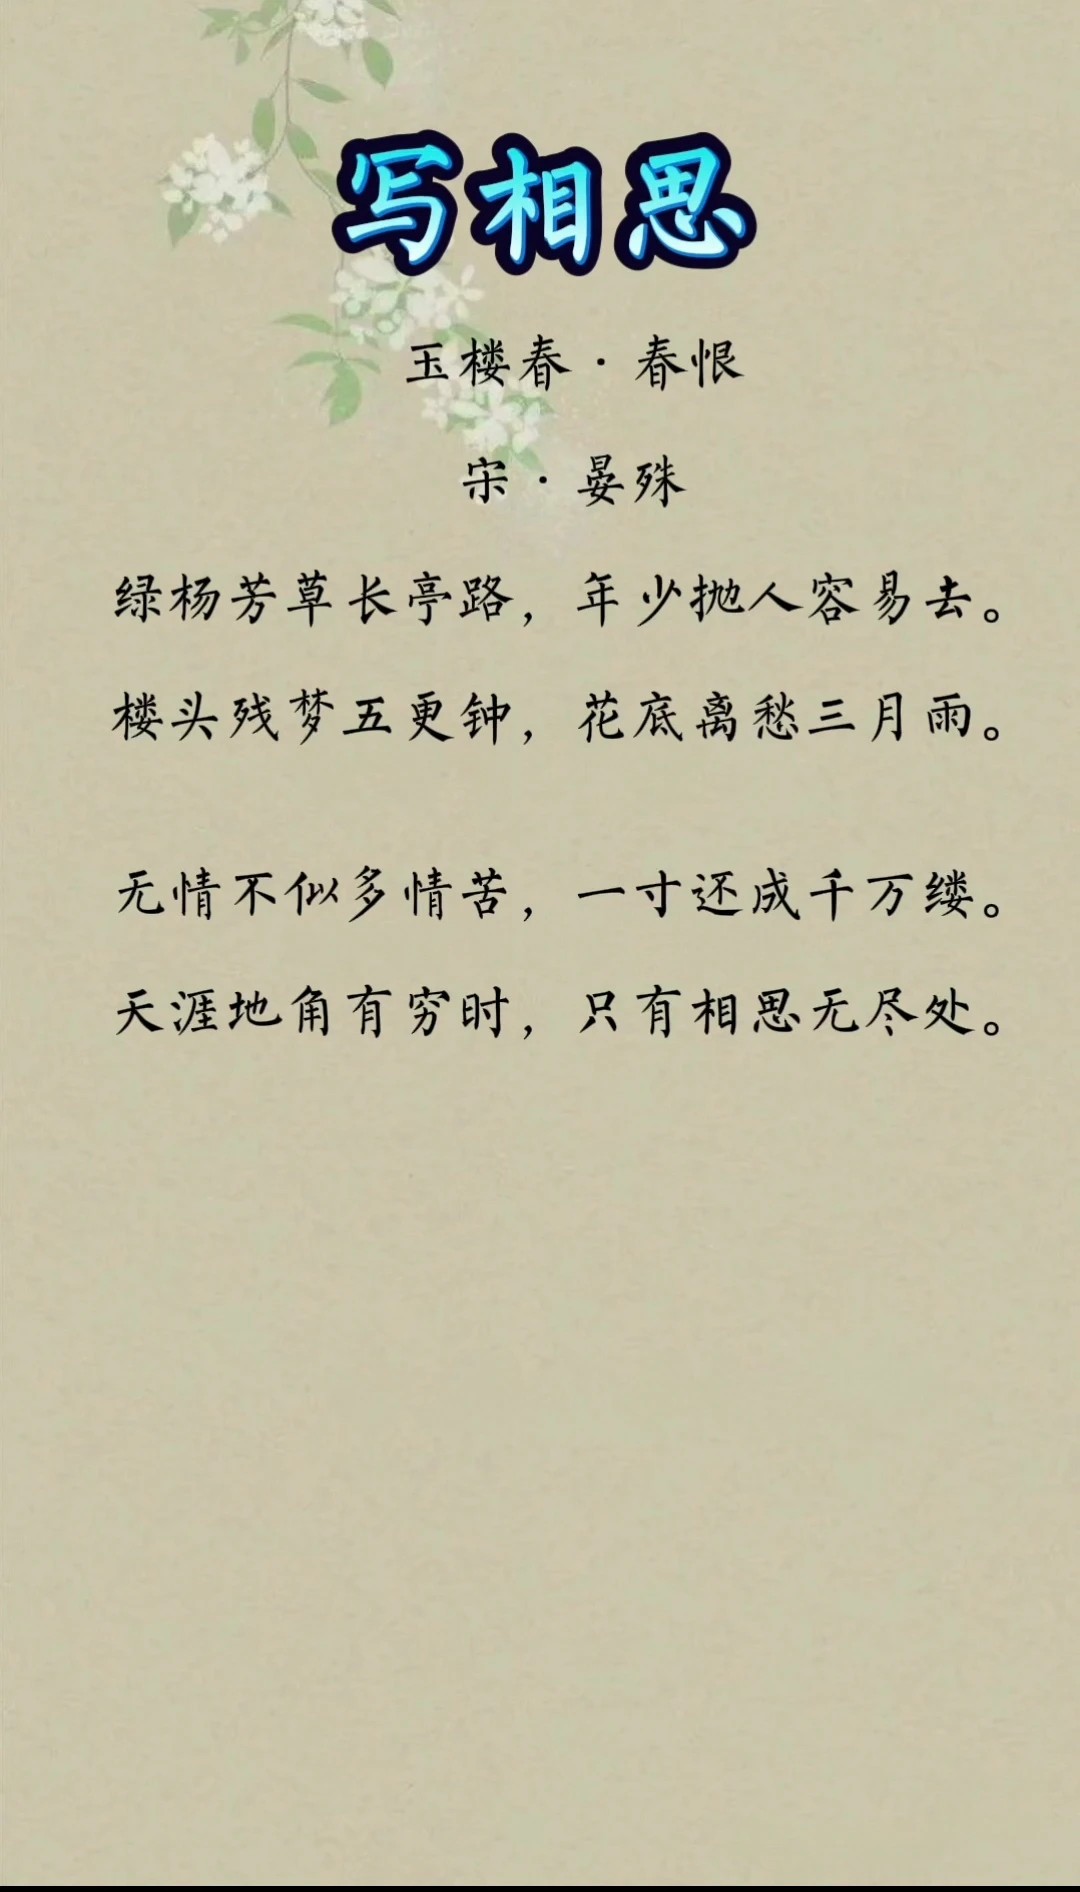 写相思
玉楼春·春恨
宋·晏殊
绿杨芳草长亭路，年少抛人容易去。
楼头残梦五更钟，花底离愁三月雨。
无情不似多情苦，一寸还成千万缕。
天涯地角有穷时，只有相思无尽处。